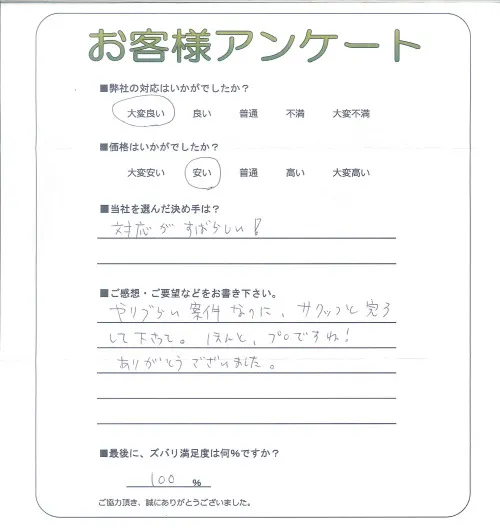 お客様アンケート
■弊社の対応はいかがでしたか？
大変良い 良い 普通 不満 大変不満
■価格はいかがでしたか？
大変安い 安い 普通 高い 大変高い
■当社を選んだ決め手は？
対応がすばらしい！
■ご感想・ご要望などをお書き下さい。
やりづらい案件なのに、サクッと完了
して下さって。ほんと、プロですね！
ありがとうございました。
■最後に、ズバリ満足度は何%ですか？
100 %
ご協力頂き、誠にありがとうございました。